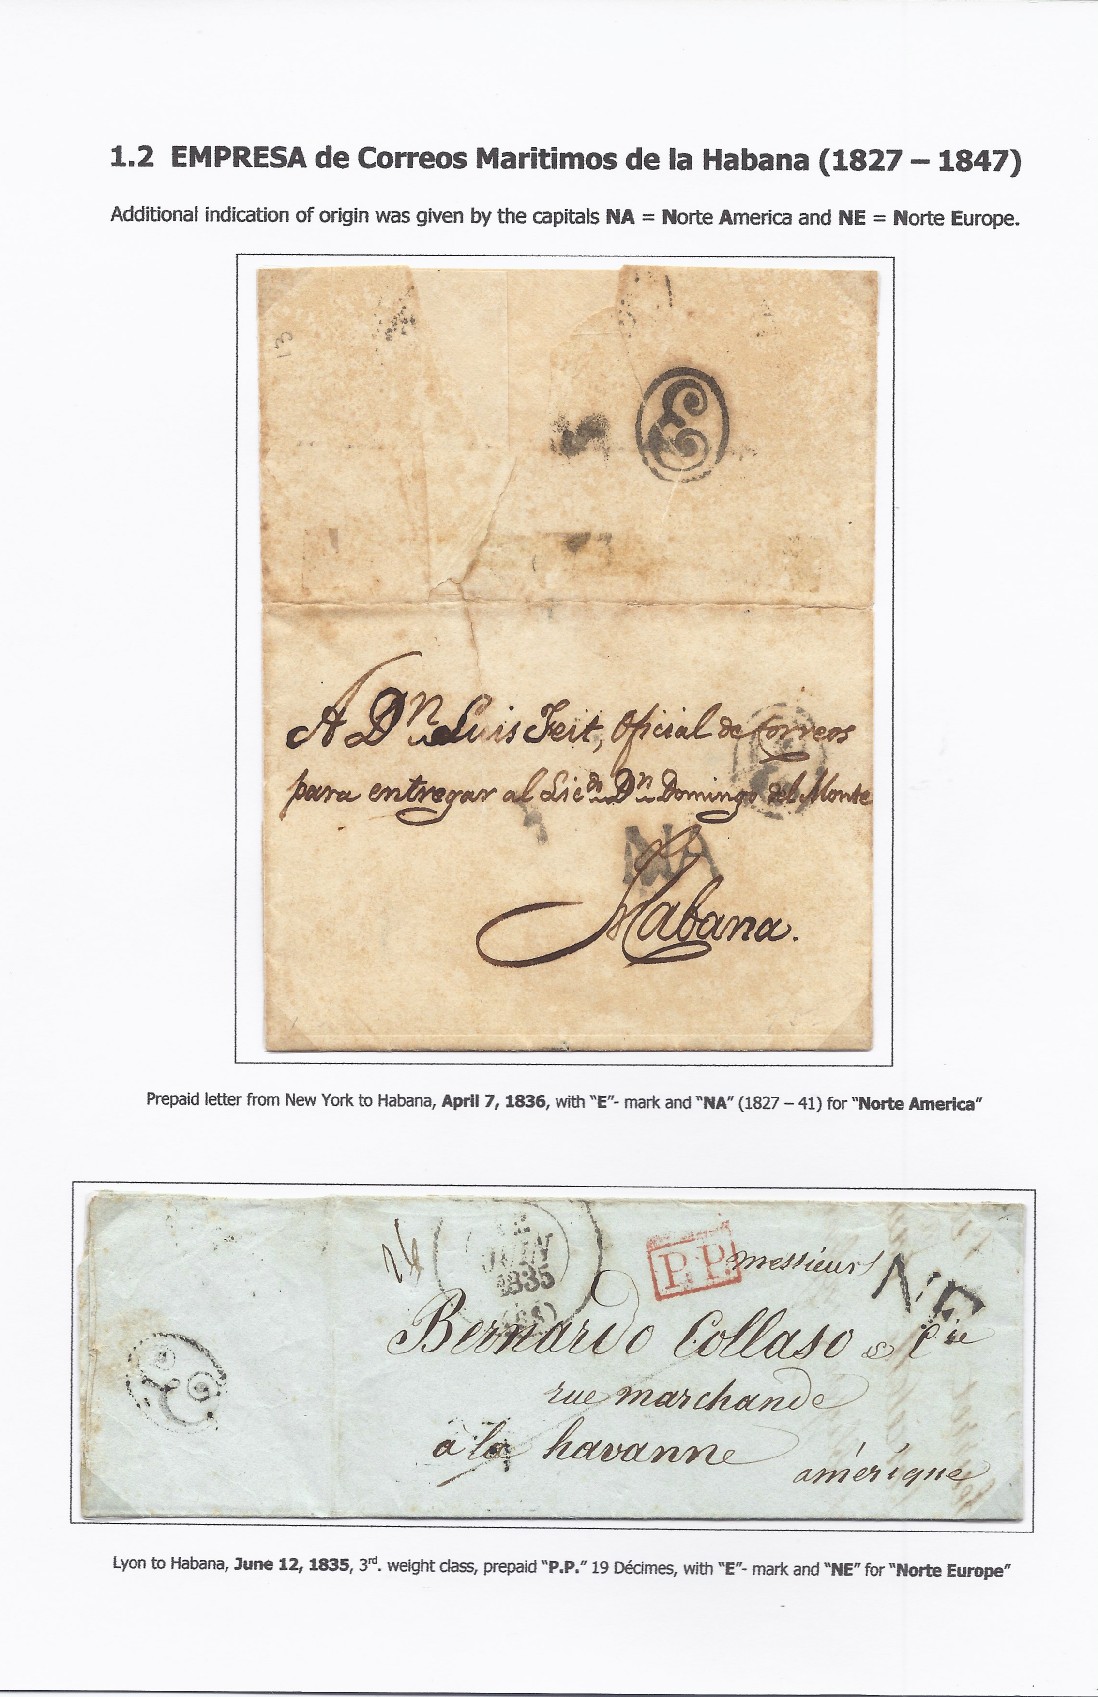 1.2 EMPRESA de Correos Maritimos de la Habana (1827 – 1847)
Additional indication of origin was given by the capitals NA = Norte America and NE = Norte Europe.
13
E
A Dn Luis Feit, Oficial de Correos
para entregar al Licdo Dn Domingo del Monte
NA
Habana.
Prepaid letter from New York to Habana, April 7, 1836, with "E"- mark and "NA" (1827 – 41) for "Norte America"
12
JUIN
1835
P.P.
messieurs
NE
Bernardo Collaso & Cie
rue marchande
a la havanne
amérique
E
Lyon to Habana, June 12, 1835, 3rd. weight class, prepaid "P.P." 19 Décimes, with "E"- mark and "NE" for "Norte Europe"